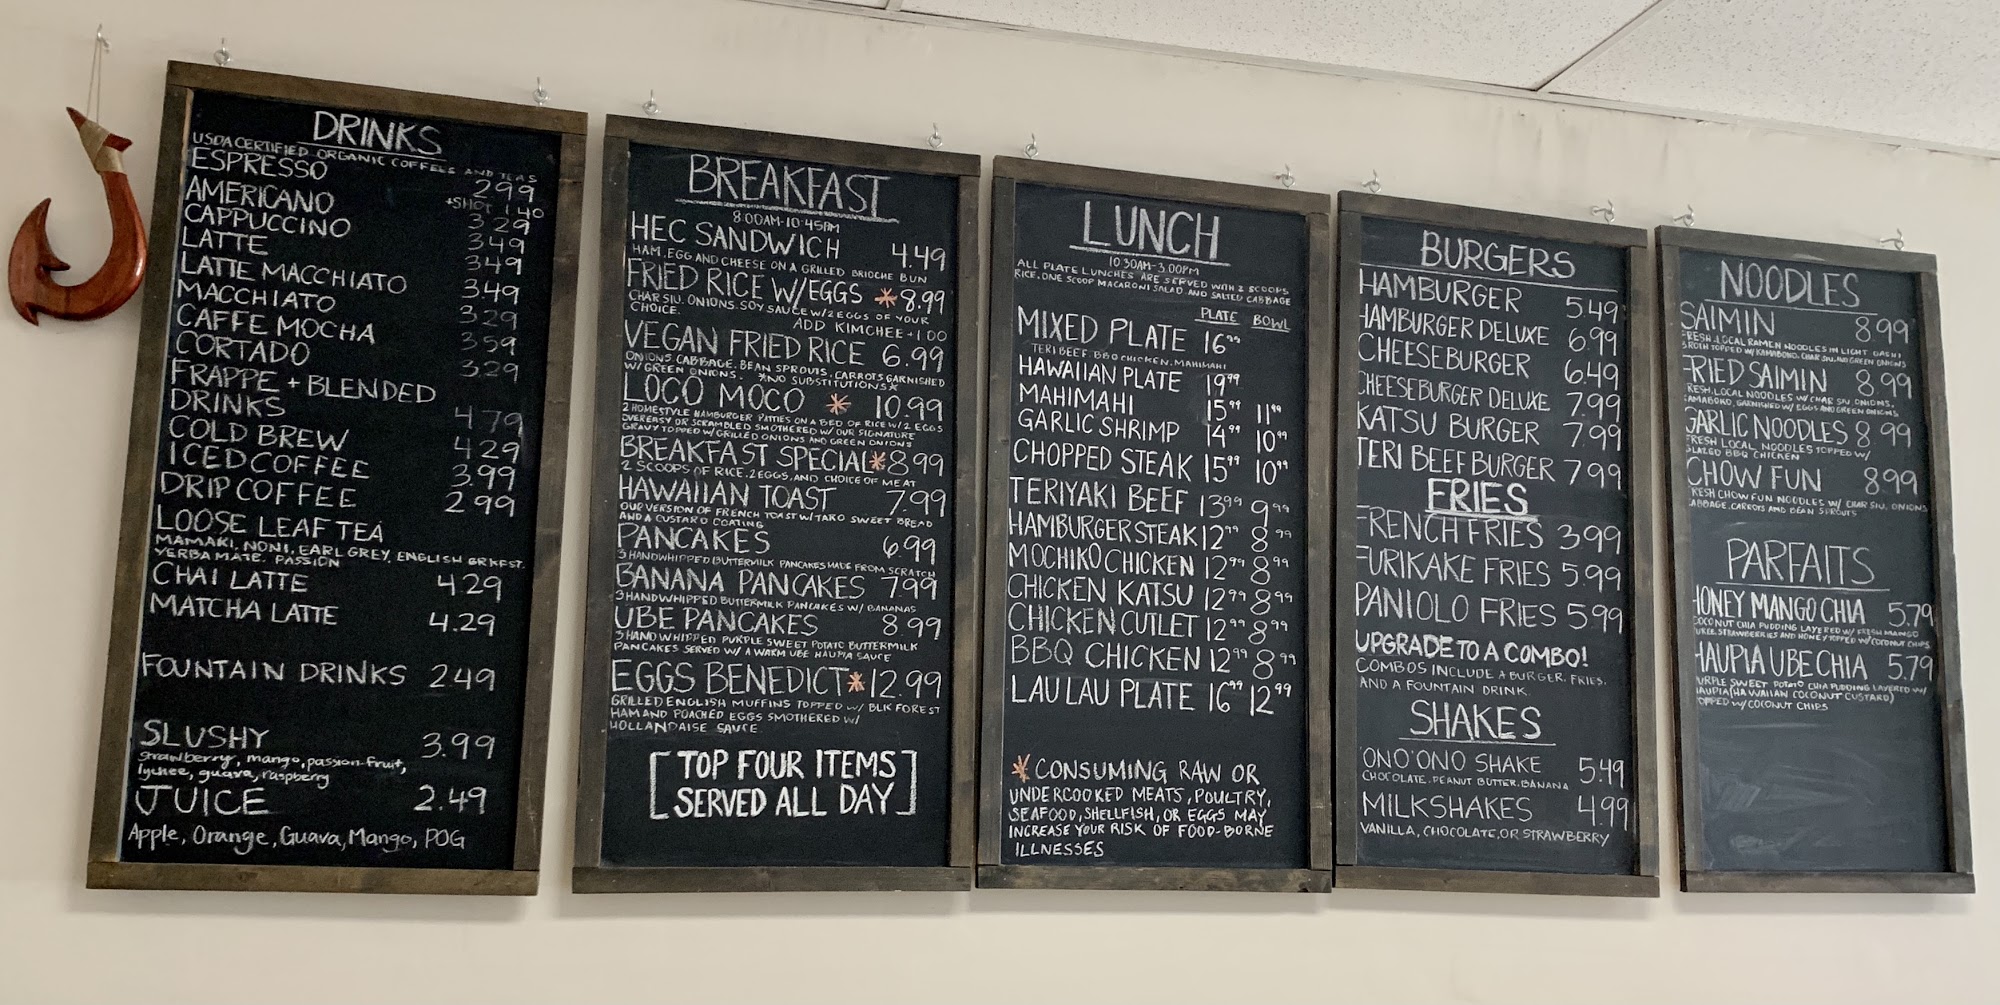 DRINKS
USDA CERTIFIED ORGANIC COFFEES AND TEAS
ESPRESSO 2.99
+SHOT 1.40
AMERICANO 3.29
CAPPUCCINO 3.49
LATTE 3.49
LATTE MACCHIATO 3.49
MACCHIATO 3.29
CAFFE MOCHA 3.59
CORTADO 3.29
FRAPPE + BLENDED
DRINKS 4.79
COLD BREW 4.29
ICED COFFEE 3.99
DRIP COFFEE 2.99
LOOSE LEAF TEA
MAMAKI, NONI, EARL GREY, ENGLISH BRKFST.
YERBA MATE. PASSION
CHAI LATTE 4.29
MATCHA LATTE 4.29
FOUNTAIN DRINKS 2.49
SLUSHY 3.99
strawberry, mango, passion-fruit,
lychee, guava, raspberry
JUICE 2.49
Apple, Orange, Guava, Mango, POG
BREAKFAST
8:00AM-10:45AM
HEC SANDWICH 4.49
HAM, EGG AND CHEESE ON A GRILLED BRIOCHE BUN
FRIED RICE W/EGGS *8.99
CHAR SIU, ONIONS, SOY SAUCE W/ 2 EGGS OF YOUR
CHOICE.
ADD KIMCHEE +1.00
VEGAN FRIED RICE 6.99
ONIONS, CABBAGE, BEAN SPROUTS, CARROTS GARNISHED
W/ GREEN ONIONS. *NO SUBSTITUTIONS*
LOCO MOCO * 10.99
2 HOMESTYLE HAMBURGER PATTIES ON A BED OF RICE W/ 2 EGGS
OVEREASY OR SCRAMBLED SMOTHERED W/ OUR SIGNATURE
GRAVY TOPPED W/ GRILLED ONIONS AND GREEN ONIONS
BREAKFAST SPECIAL *8.99
2 SCOOPS OF RICE, 2 EGGS, AND CHOICE OF MEAT
HAWAIIAN TOAST 7.99
OUR VERSION OF FRENCH TOAST W/ TARO SWEET BREAD
AND A CUSTARD COATING
PANCAKES 6.99
3 HANDWHIPPED BUTTERMILK PANCAKES MADE FROM SCRATCH
BANANA PANCAKES 7.99
3 HANDWHIPPED BUTTERMILK PANCAKES W/ BANANAS
UBE PANCAKES 8.99
3 HANDWHIPPED PURPLE SWEET POTATO BUTTERMILK
PANCAKES SERVED W/ A WARM UBE HAUPIA SAUCE
EGGS BENEDICT *12.99
GRILLED ENGLISH MUFFINS TOPPED W/ BLK FOREST
HAM AND POACHED EGGS SMOTHERED W/
HOLLANDAISE SAUCE.
[TOP FOUR ITEMS
SERVED ALL DAY]
LUNCH
10:30AM-3:00PM
ALL PLATE LUNCHES ARE SERVED WITH 2 SCOOPS
RICE, ONE SCOOP MACARONI SALAD AND SALTED CABBAGE
PLATE BOWL
MIXED PLATE 16.99
TERI BEEF, BBQ CHICKEN, MAHIMAHI
HAWAIIAN PLATE 19.99
MAHIMAHI 15.99 11.99
GARLIC SHRIMP 14.99 10.99
CHOPPED STEAK 15.99 10.99
TERIYAKI BEEF 13.99 9.99
HAMBURGER STEAK 12.99 8.99
MOCHIKO CHICKEN 12.99 8.99
CHICKEN KATSU 12.99 8.99
CHICKEN CUTLET 12.99 8.99
BBQ CHICKEN 12.99 8.99
LAU LAU PLATE 16.99 12.99
* CONSUMING RAW OR
UNDERCOOKED MEATS, POULTRY,
SEAFOOD, SHELLFISH, OR EGGS MAY
INCREASE YOUR RISK OF FOOD-BORNE
ILLNESSES
BURGERS
HAMBURGER 5.49
HAMBURGER DELUXE 6.99
CHEESEBURGER 6.49
CHEESEBURGER DELUXE 7.99
KATSU BURGER 7.99
TERI BEEF BURGER 7.99
FRIES
FRENCH FRIES 3.99
FURIKAKE FRIES 5.99
PANIOLO FRIES 5.99
UPGRADE TO A COMBO!
COMBOS INCLUDE A BURGER, FRIES,
AND A FOUNTAIN DRINK.
SHAKES
'ONO 'ONO SHAKE 5.49
CHOCOLATE, PEANUT BUTTER, BANANA
MILKSHAKES 4.99
VANILLA, CHOCOLATE, OR STRAWBERRY
NOODLES
SAIMIN 8.99
FRESH, LOCAL RAMEN NOODLES IN LIGHT DASHI
BROTH TOPPED W/ KAMABOKO, CHAR SIU, AND GREEN ONIONS
FRIED SAIMIN 8.99
FRESH, LOCAL NOODLES W/ CHAR SIU, ONIONS,
KAMABOKO, GARNISHED W/ EGGS AND GREEN ONIONS
GARLIC NOODLES 8.99
FRESH LOCAL NOODLES TOPPED W/
GLAZED BBQ CHICKEN
CHOW FUN 8.99
FRESH CHOW FUN NOODLES W/ CHAR SIU, ONIONS
CABBAGE, CARROTS AND BEAN SPROUTS
PARFAITS
HONEY MANGO CHIA 5.79
COCONUT CHIA PUDDING LAYERED W/ FRESH MANGO
PUREE, STRAWBERRIES AND HONEY TOPPED W/ COCONUT CHIPS
HAUPIA UBE CHIA 5.79
PURPLE SWEET POTATO CHIA PUDDING LAYERED W/
HAUPIA (HAWAIIAN COCONUT CUSTARD)
TOPPED W/ COCONUT CHIPS